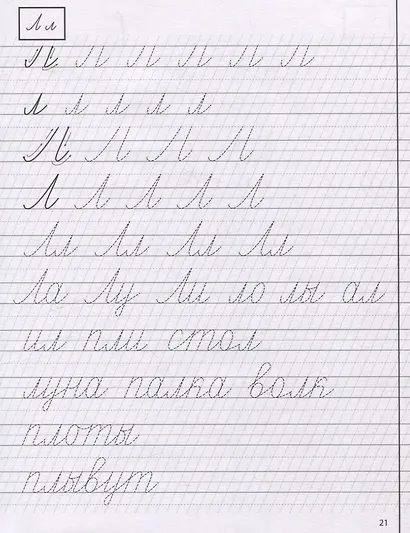 Л л
л л л л л л
л л л л л
Л Л Л Л
Л Л Л Л Л
Лл Лл Лл Лл
Ла Лу Ли ло лы ал
ил пли стол
луна палка волк
плоты
плывут
21